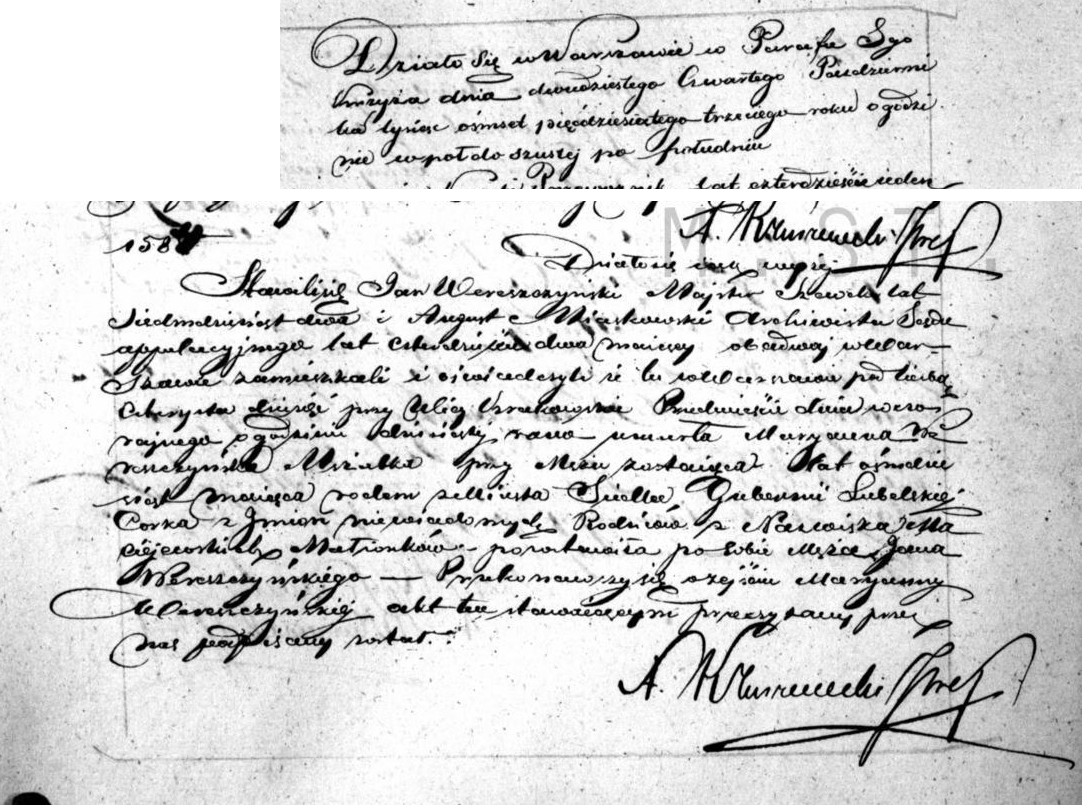 Działo się w Warszawie w Parafii Sgo
Krzyża dnia dwudziestego Czwartego Pazdzierni
ka tysiąc ośmset pięćdziesiątego trzeciego roku o godzi
nie wpoł do szustej po południu
lat czterdzieście ieden
158
M S T
Działo się iak wyżej
Stawili się Jan Wereszczyński Majster Szewski lat
siedmdziesiąt dwa i August Miaskowski Archiwista Sądu
appelacyjnego lat czterdzieście dwa maiący obadwaj w War-
szawie zamieszkali i oświadczyli iż tu w Warszawie pod liczbą
czterysta przy Ulicy Krakowskie Przedmieście dnia wczo
rajszego o godzinie dziesiątej rano umarła Maryanna We
reszczyńska Mężatka przy Mężu zostaiąca lat ośmdzie
siąt maiąca rodem z Miasta Siedlec Gubernii Lubelskiej
Corka z Imion niewiadomych Rodziców z Nazwiska Ma
ciejewskich Małżonków – pozostawiła po sobie Męża Jana
Wereszczyńskiego — Przekonawszy się o zejściu Maryanny
Wereszczyńskiej akt ten stawaiącym przeczytany przez
nas podpisany został.
A.